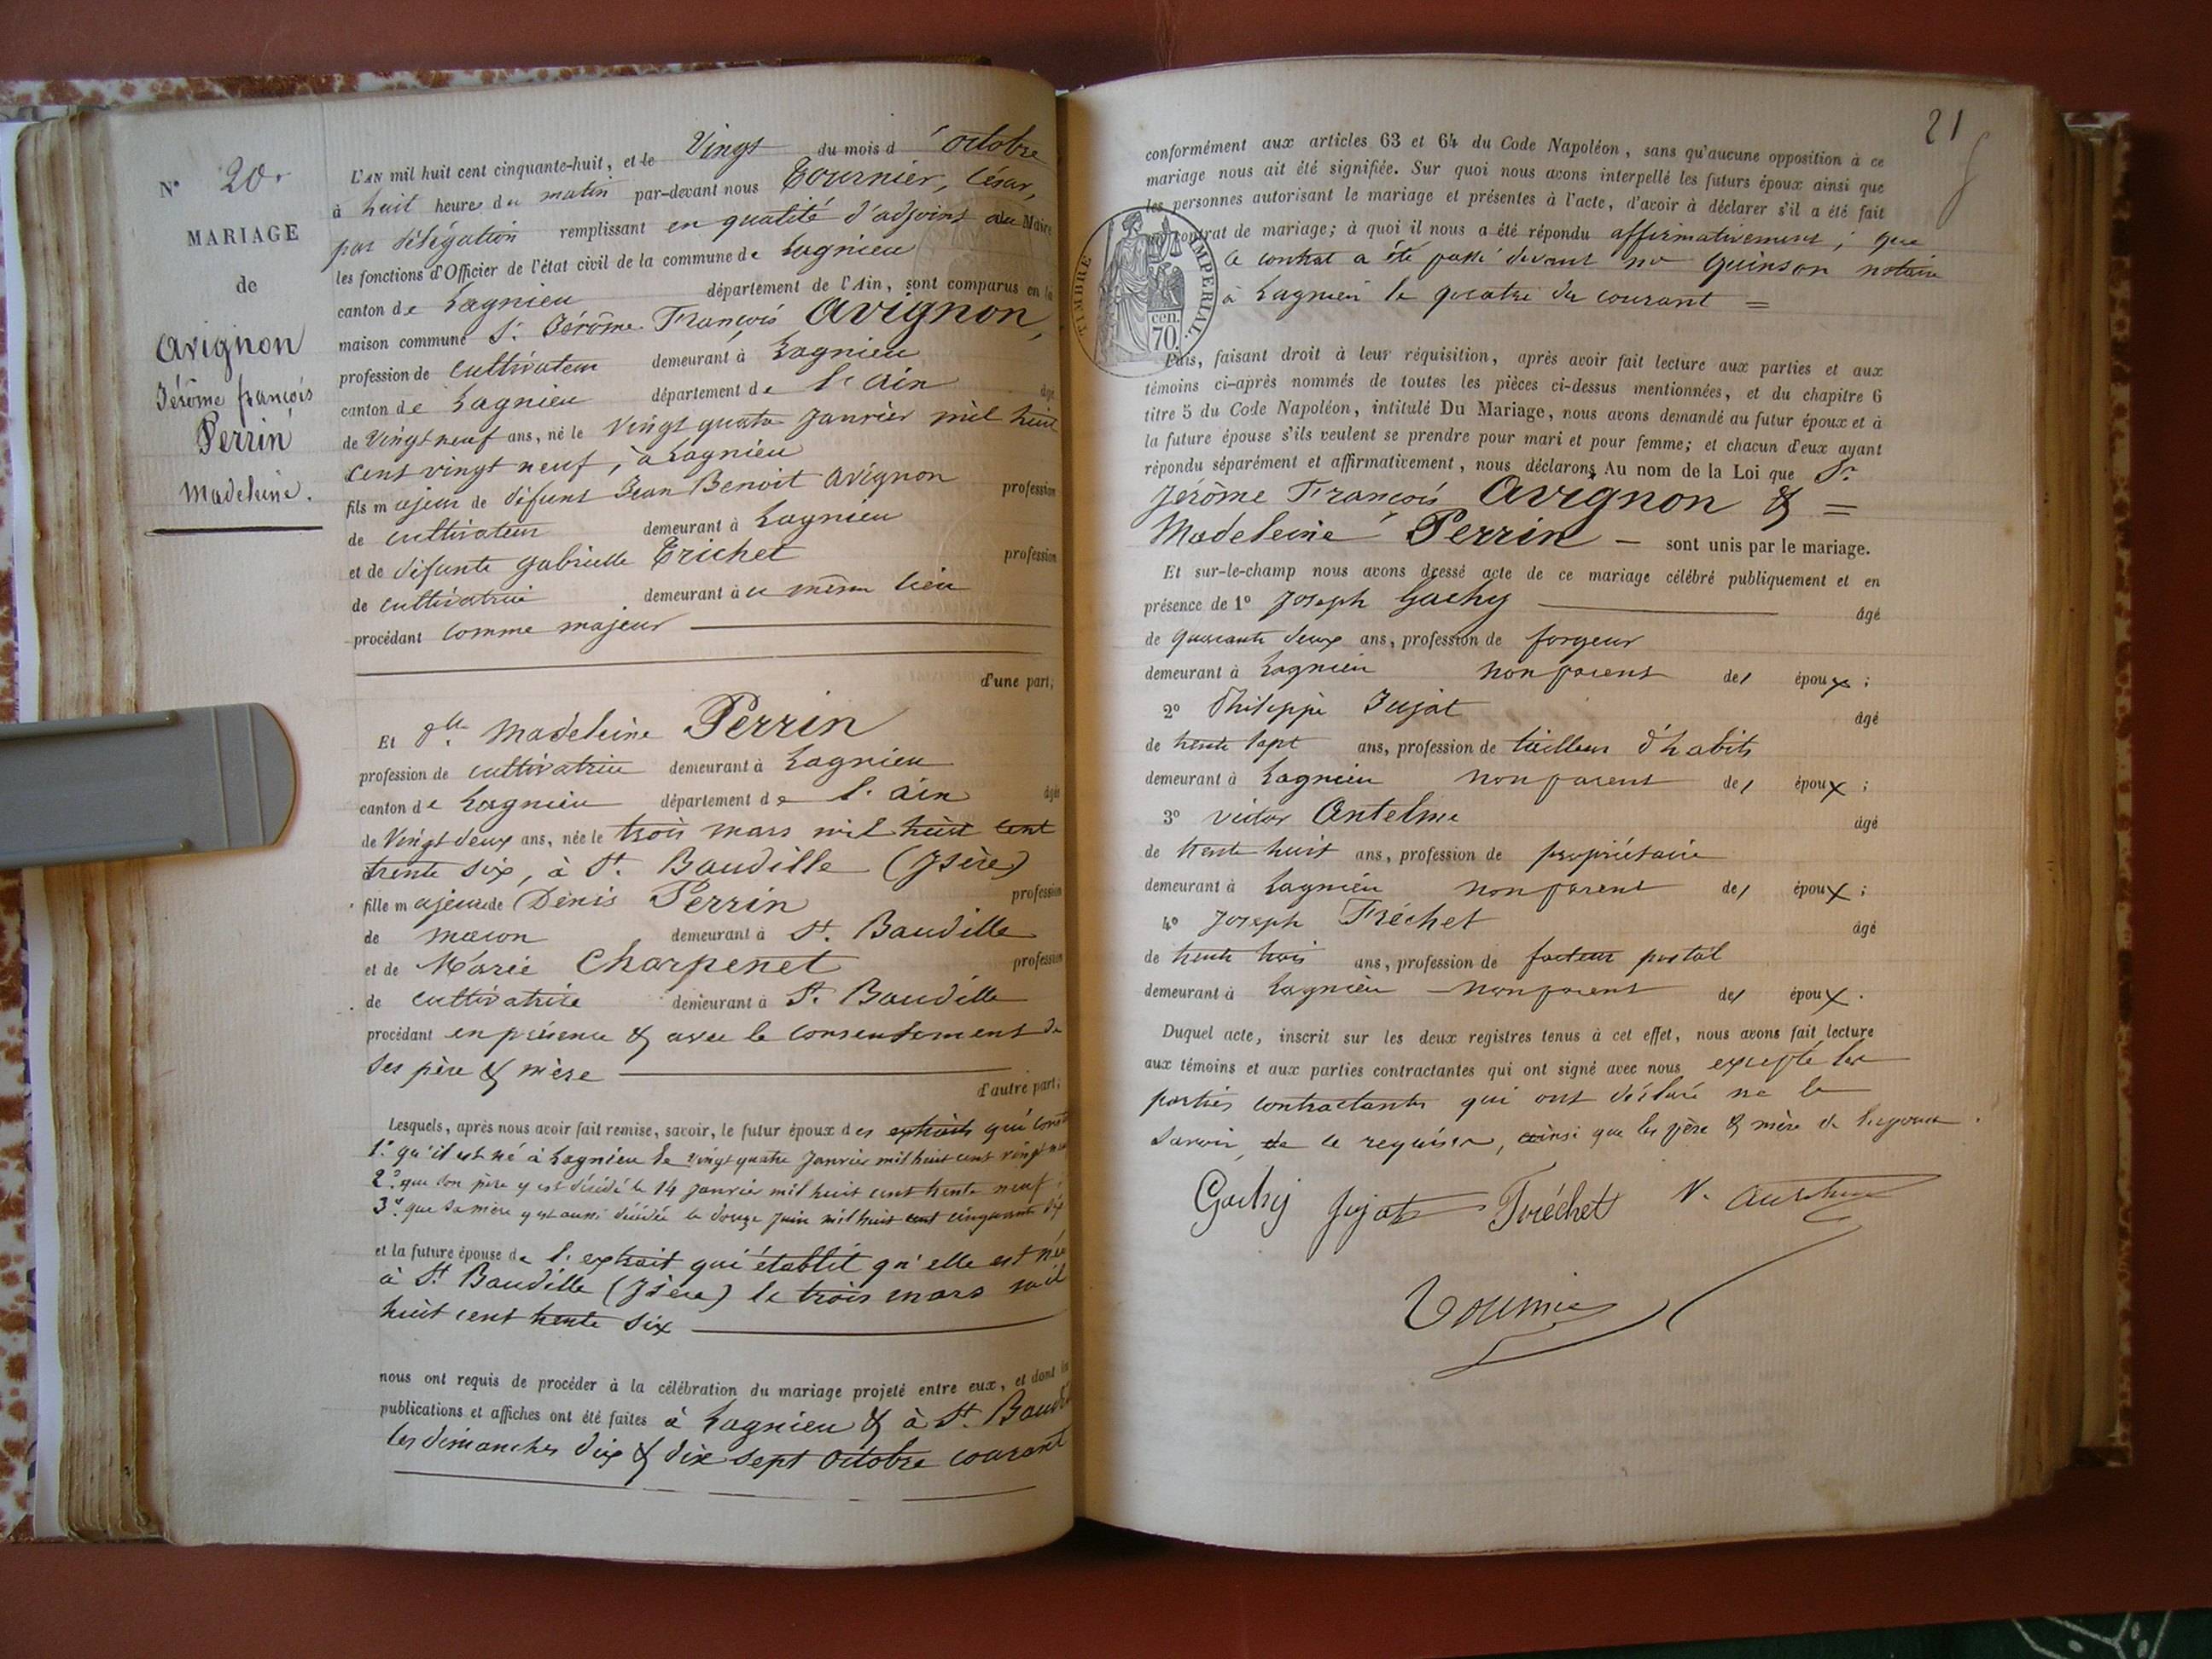 N° 20.
MARIAGE
de
Avignon
Jérôme françois
Perrin
Madeleine.
L'AN mil huit cent cinquante-huit, et le Vingt du mois d'octobre
à huit heures du matin par-devant nous Tournier, César,
par délégation remplissant en qualité d'adjoint au Maire
les fonctions d'Officier de l'état civil de la commune de Lagnieu
canton de Lagnieu département de l'Ain, sont comparus en la
maison commune Sr. Jérôme François Avignon,
profession de cultivateur demeurant à Lagnieu
canton de Lagnieu département de l'Ain âgé
de Vingt neuf ans, né le vingt quatre Janvier mil huit
cent vingt neuf, à Lagnieu
fils majeur de défunt Jean Benoit Avignon profession
de cultivateur demeurant à Lagnieu
et de défunte Gabrielle Trichet profession
de cultivatrice demeurant à ce même lieu
procédant comme majeur
d'une part;
Et Dlle. Madeleine Perrin
profession de cultivatrice demeurant à Lagnieu
canton de Lagnieu département de l'ain âgée
de Vingt deux ans, née le trois mars mil huit cent
trente six, à St. Baudille (Isère)
fille majeure de Denis Perrin profession
de macon demeurant à St. Baudille
et de Marie Charpenet profession
de cultivatrice demeurant à St. Baudille
procédant en présence & avec le consentement de
ses père & mère
d'autre part;
Lesquels, après nous avoir fait remise, savoir, le futur époux des extraits qui
1°. qu'il est né à Lagnieu le vingt quatre Janvier mil huit cent vingt neuf
2°. que son père y est décédé le 14 Janvier mil huit cent trente neuf
3°. que sa mère y est aussi décédée le douze Juin mil huit cent cinquante six
et la future épouse de l'extrait qui établit qu'elle est née
à St. Baudille (Isère) le trois mars mil
huit cent trente six
nous ont requis de procéder à la célébration du mariage projeté entre eux, et dont les
publications et affiches ont été faites à Lagnieu & à St. Baudille
les dimanches dix & dix sept octobre courant
21
conformément aux articles 63 et 64 du Code Napoléon, sans qu'aucune opposition à ce
mariage nous ait été signifiée. Sur quoi nous avons interpellé les futurs époux ainsi que
les personnes autorisant le mariage et présentes à l'acte, d'avoir à déclarer s'il a été fait
un contrat de mariage; à quoi il nous a été répondu affirmativement; que
le contrat a été passé devant me Quinson notaire
à Lagnieu le quatre du courant =
TIMBRE IMPERIAL.
cen.
70.
Puis, faisant droit à leur réquisition, après avoir fait lecture aux parties et aux
témoins ci-après nommés de toutes les pièces ci-dessus mentionnées, et du chapitre 6
titre 5 du Code Napoléon, intitulé Du Mariage, nous avons demandé au futur époux et à
la future épouse s'ils veulent se prendre pour mari et pour femme; et chacun d'eux ayant
répondu séparément et affirmativement, nous déclarons Au nom de la Loi que Sr.
Jérôme François Avignon & =
Madeleine Perrin — sont unis par le mariage.
Et sur-le-champ nous avons dressé acte de ce mariage célébré publiquement et en
présence de 1° Joseph Gachy âgé
de quarante deux ans, profession de forgeur
demeurant à Lagnieu non parent des époux;
2° Philippe Jujat âgé
de trente sept ans, profession de tailleur d'habits
demeurant à Lagnieu non parent des époux;
3° Victor Antelme âgé
de trente huit ans, profession de propriétaire
demeurant à Lagnieu non parent des époux;
4° Joseph Fréchet âgé
de trente trois ans, profession de facteur postal
demeurant à Lagnieu non parent des époux.
Duquel acte, inscrit sur les deux registres tenus à cet effet, nous avons fait lecture
aux témoins et aux parties contractantes qui ont signé avec nous excepté les
parties contractantes qui ont déclaré ne le
savoir, de ce requises, ainsi que les père & mère de l'épouse.
Gachy Jujat Fréchet V. Antelme
Tournier